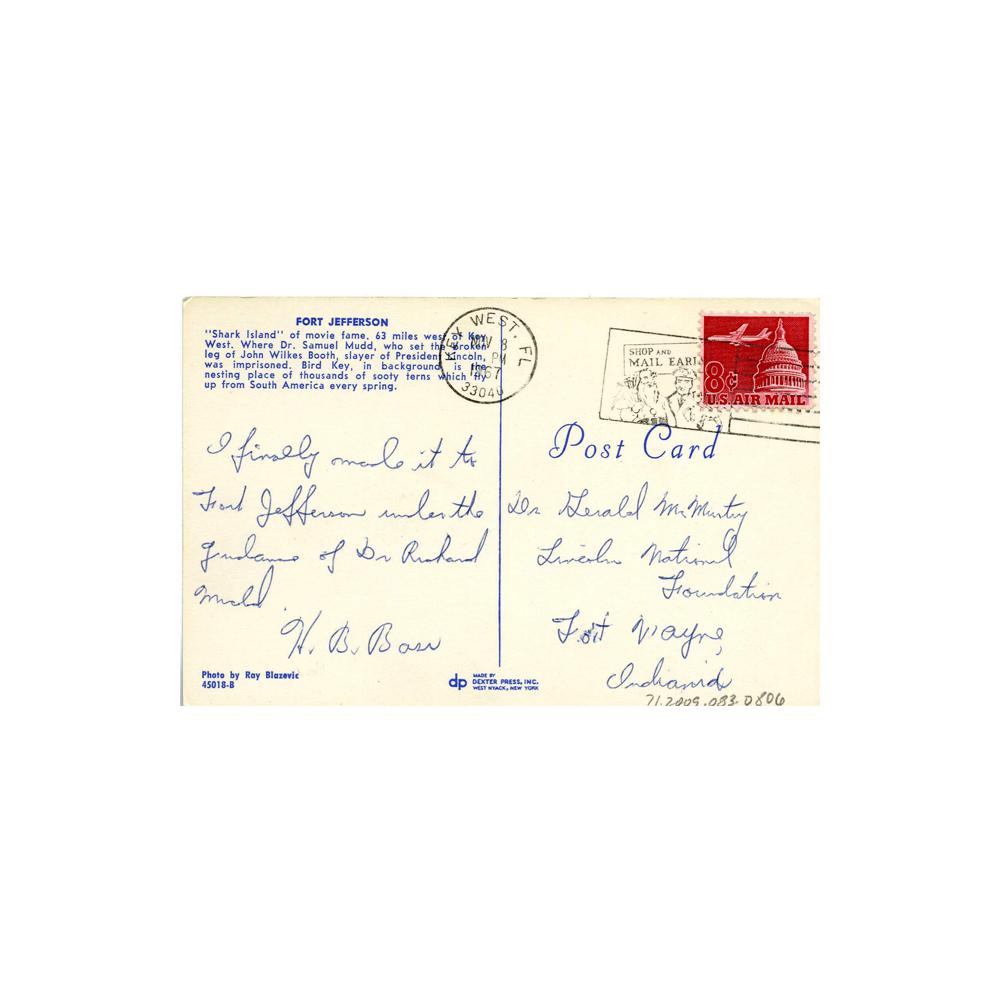 FORT JEFFERSON
"Shark Island" of movie fame, 63 miles west of Key
West. Where Dr. Samuel Mudd, who set the broken
leg of John Wilkes Booth, slayer of President Lincoln,
was imprisoned. Bird Key, in background, is the
nesting place of thousands of sooty terns which fly
up from South America every spring.
KEY WEST, FL
NOV 8
PM
1967
33040
SHOP AND
MAIL EARLY
8¢
U.S. AIR MAIL
Post Card
I finally made it to
Fort Jefferson under the
guidance of Dr Richard
Mudd.
H. B. Bass
Dr Gerald McMurtry
Lincoln National
Foundation
Fort Wayne,
Indiana
Photo by Ray Blazevic
45018-B
dp
MADE BY
DEXTER PRESS, INC.
WEST NYACK, NEW YORK
71.2009.083.0806